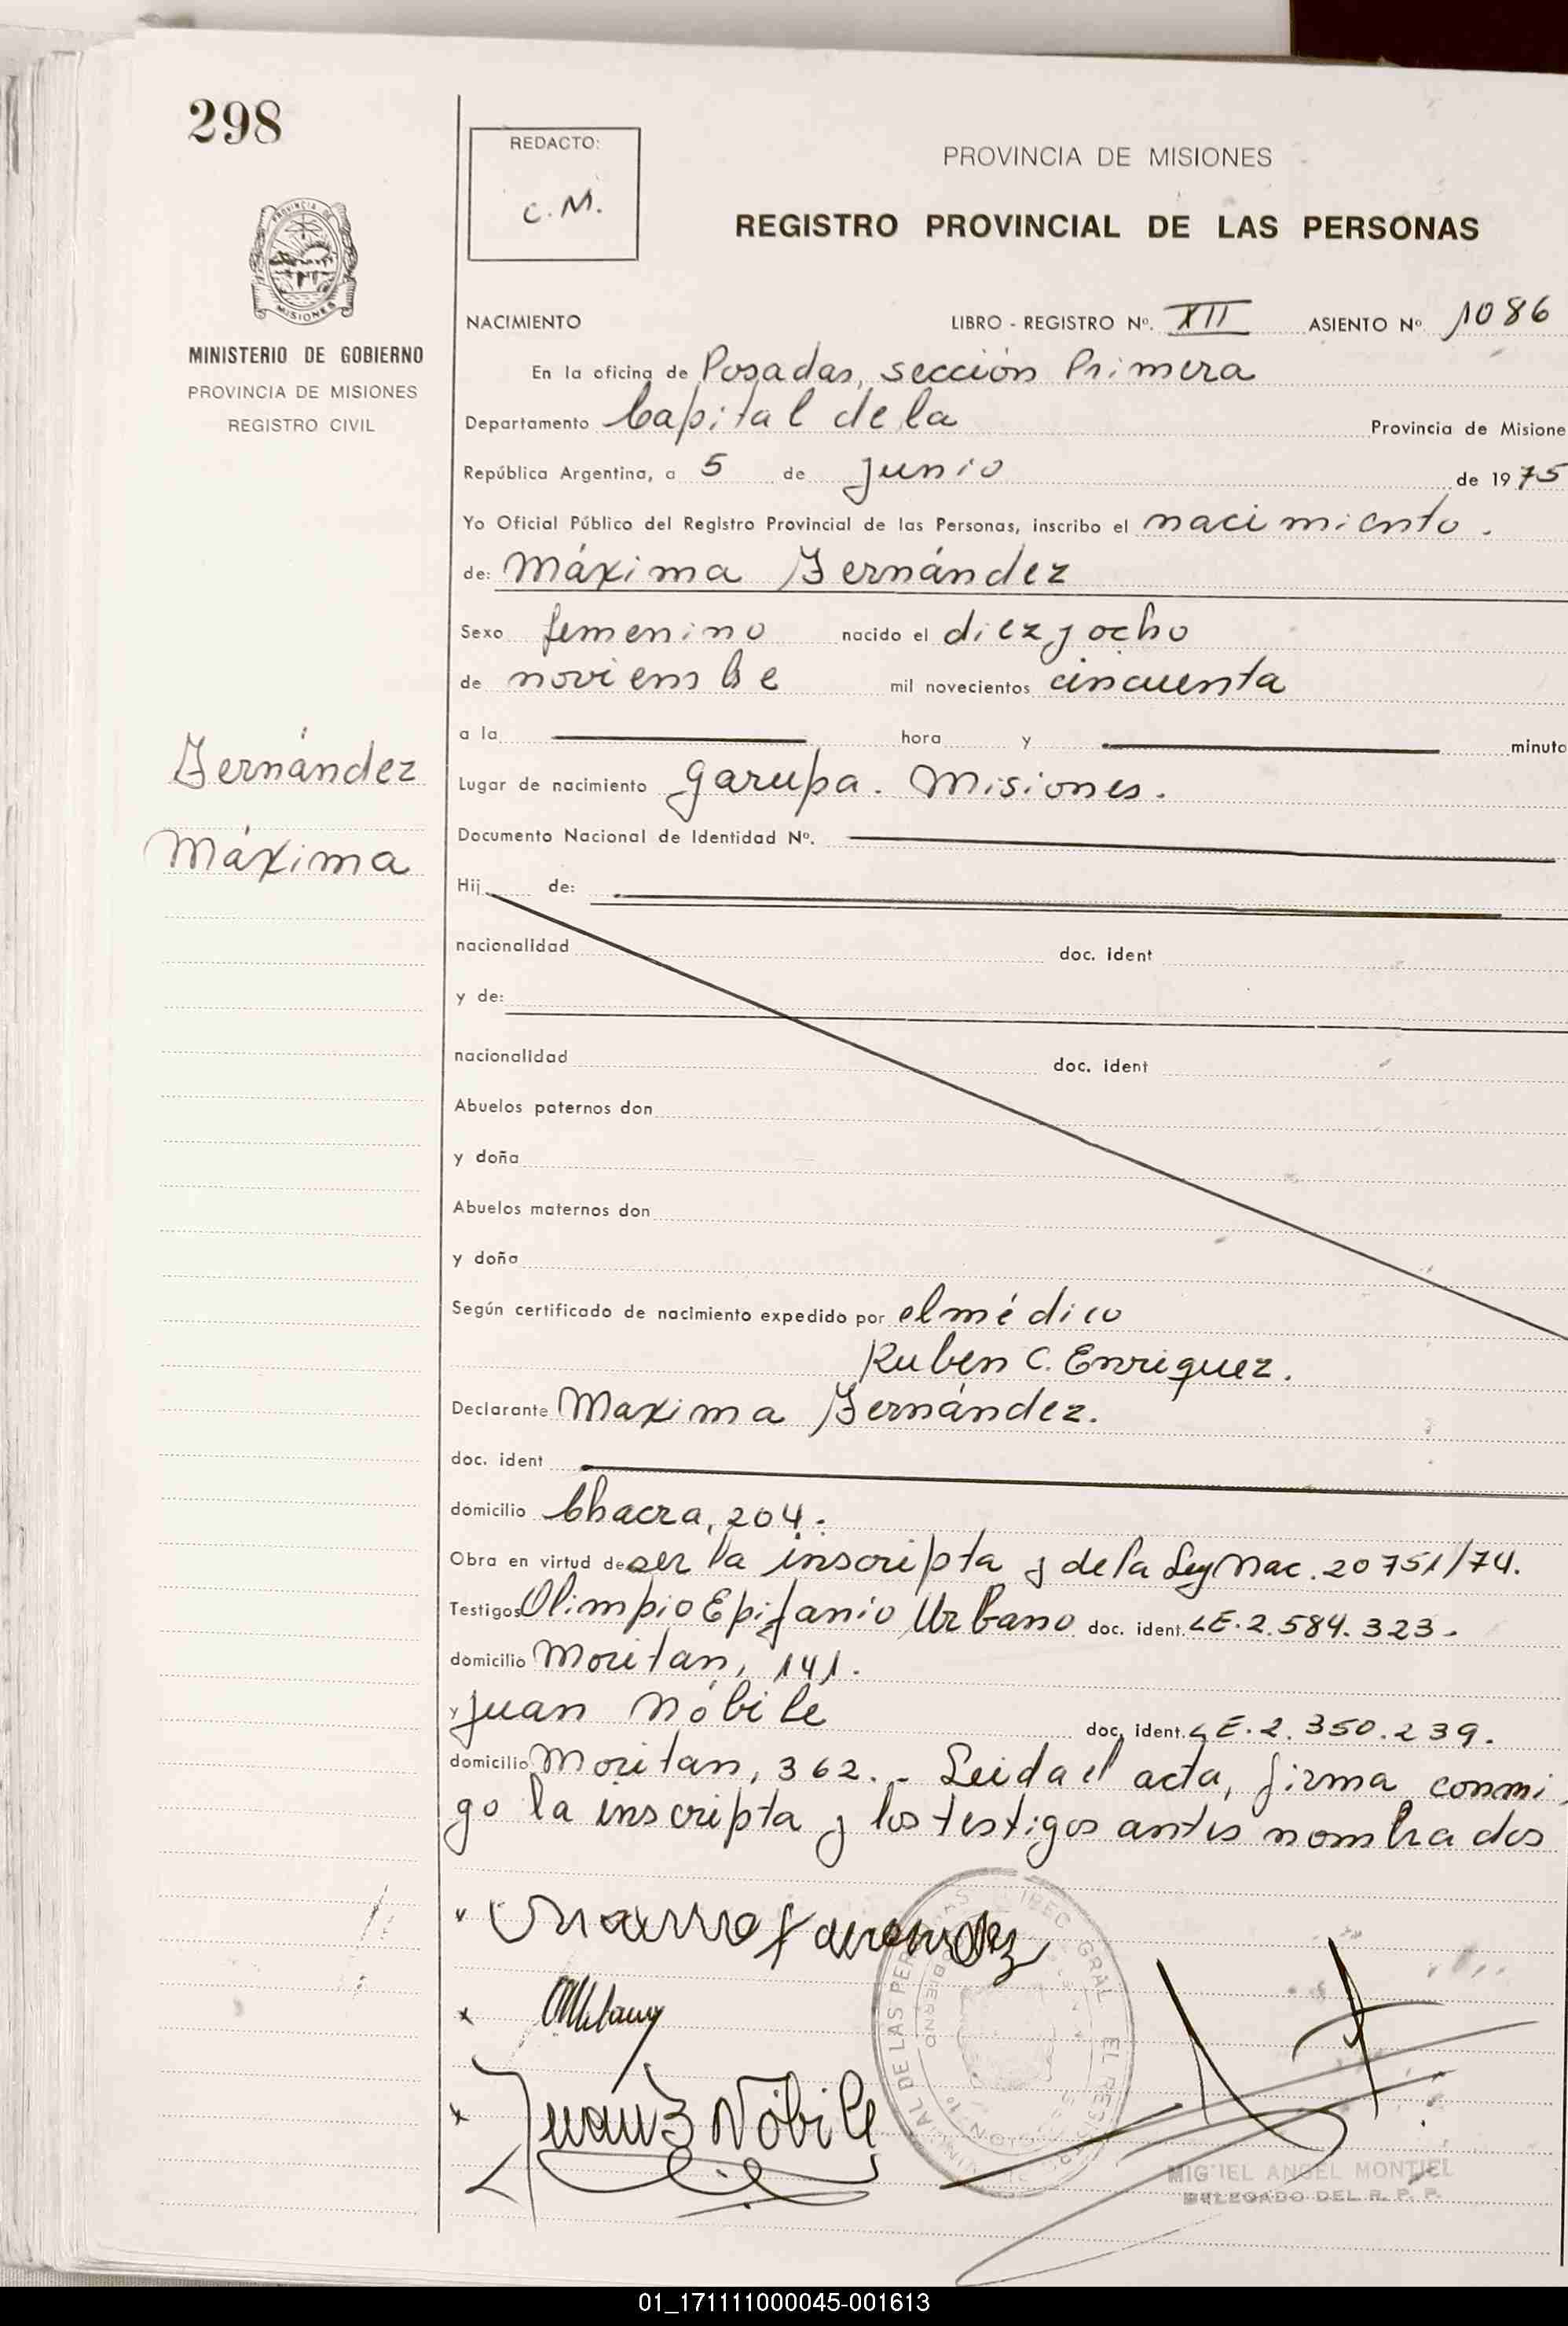 298
REDACTO:
C.M.
PROVINCIA DE MISIONES
REGISTRO PROVINCIAL DE LAS PERSONAS
MISIONES
MINISTERIO DE GOBIERNO
PROVINCIA DE MISIONES
REGISTRO CIVIL
NACIMIENTO LIBRO - REGISTRO Nº. XII ASIENTO Nº 1086
En la oficina de Posadas, sección Primera
Departamento Capital de la Provincia de Misione
República Argentina, a 5 de junio de 1975
Yo Oficial Público del Registro Provincial de las Personas, inscribo el nacimiento.
de: Máxima Fernández
Sexo femenino nacido el diez y ocho
de noviembre mil novecientos cincuenta
a la hora y minuto
Fernández
Lugar de nacimiento Garupa. Misiones.
Máxima
Documento Nacional de Identidad Nº.
Hij de:
nacionalidad doc. ident
y de:
nacionalidad doc. ident
Abuelos paternos don
y doña
Abuelos maternos don
y doña
Según certificado de nacimiento expedido por el médico
Ruben C. Enriquez.
Declarante Maxima Fernández.
doc. ident
domicilio Chacra, 204.
Obra en virtud de ser la inscripta y de la Ley Nac. 20751/74.
Testigos Olimpio Epifanio Urbano doc. ident. LE. 2.584.323.
domicilio Moritan, 141.
y Juan Nóbile doc. ident. LE. 2.350.239.
domicilio Moritan, 362. - Leida el acta, firma conmi
go la inscripta y los testigos antes nombrados
Juan B Nóbile
MIGUEL ANGEL MONTIEL
DELEGADO DEL R. P. P.
01_171111000045-001613